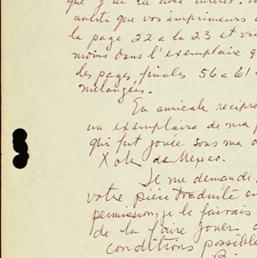 que j'ai lu avec
que vos imprimeurs
la page 22 a la 23 et
moins dans l'exemplaire
les pages, finales 56 a 61
mélangées.
En amicale
un exemplaire de ma
qui fut jouée sous ma
de Mexico.
Je me demande
votre pièce traduite
permission, je le ferais
de la faire jouer
conditions possible